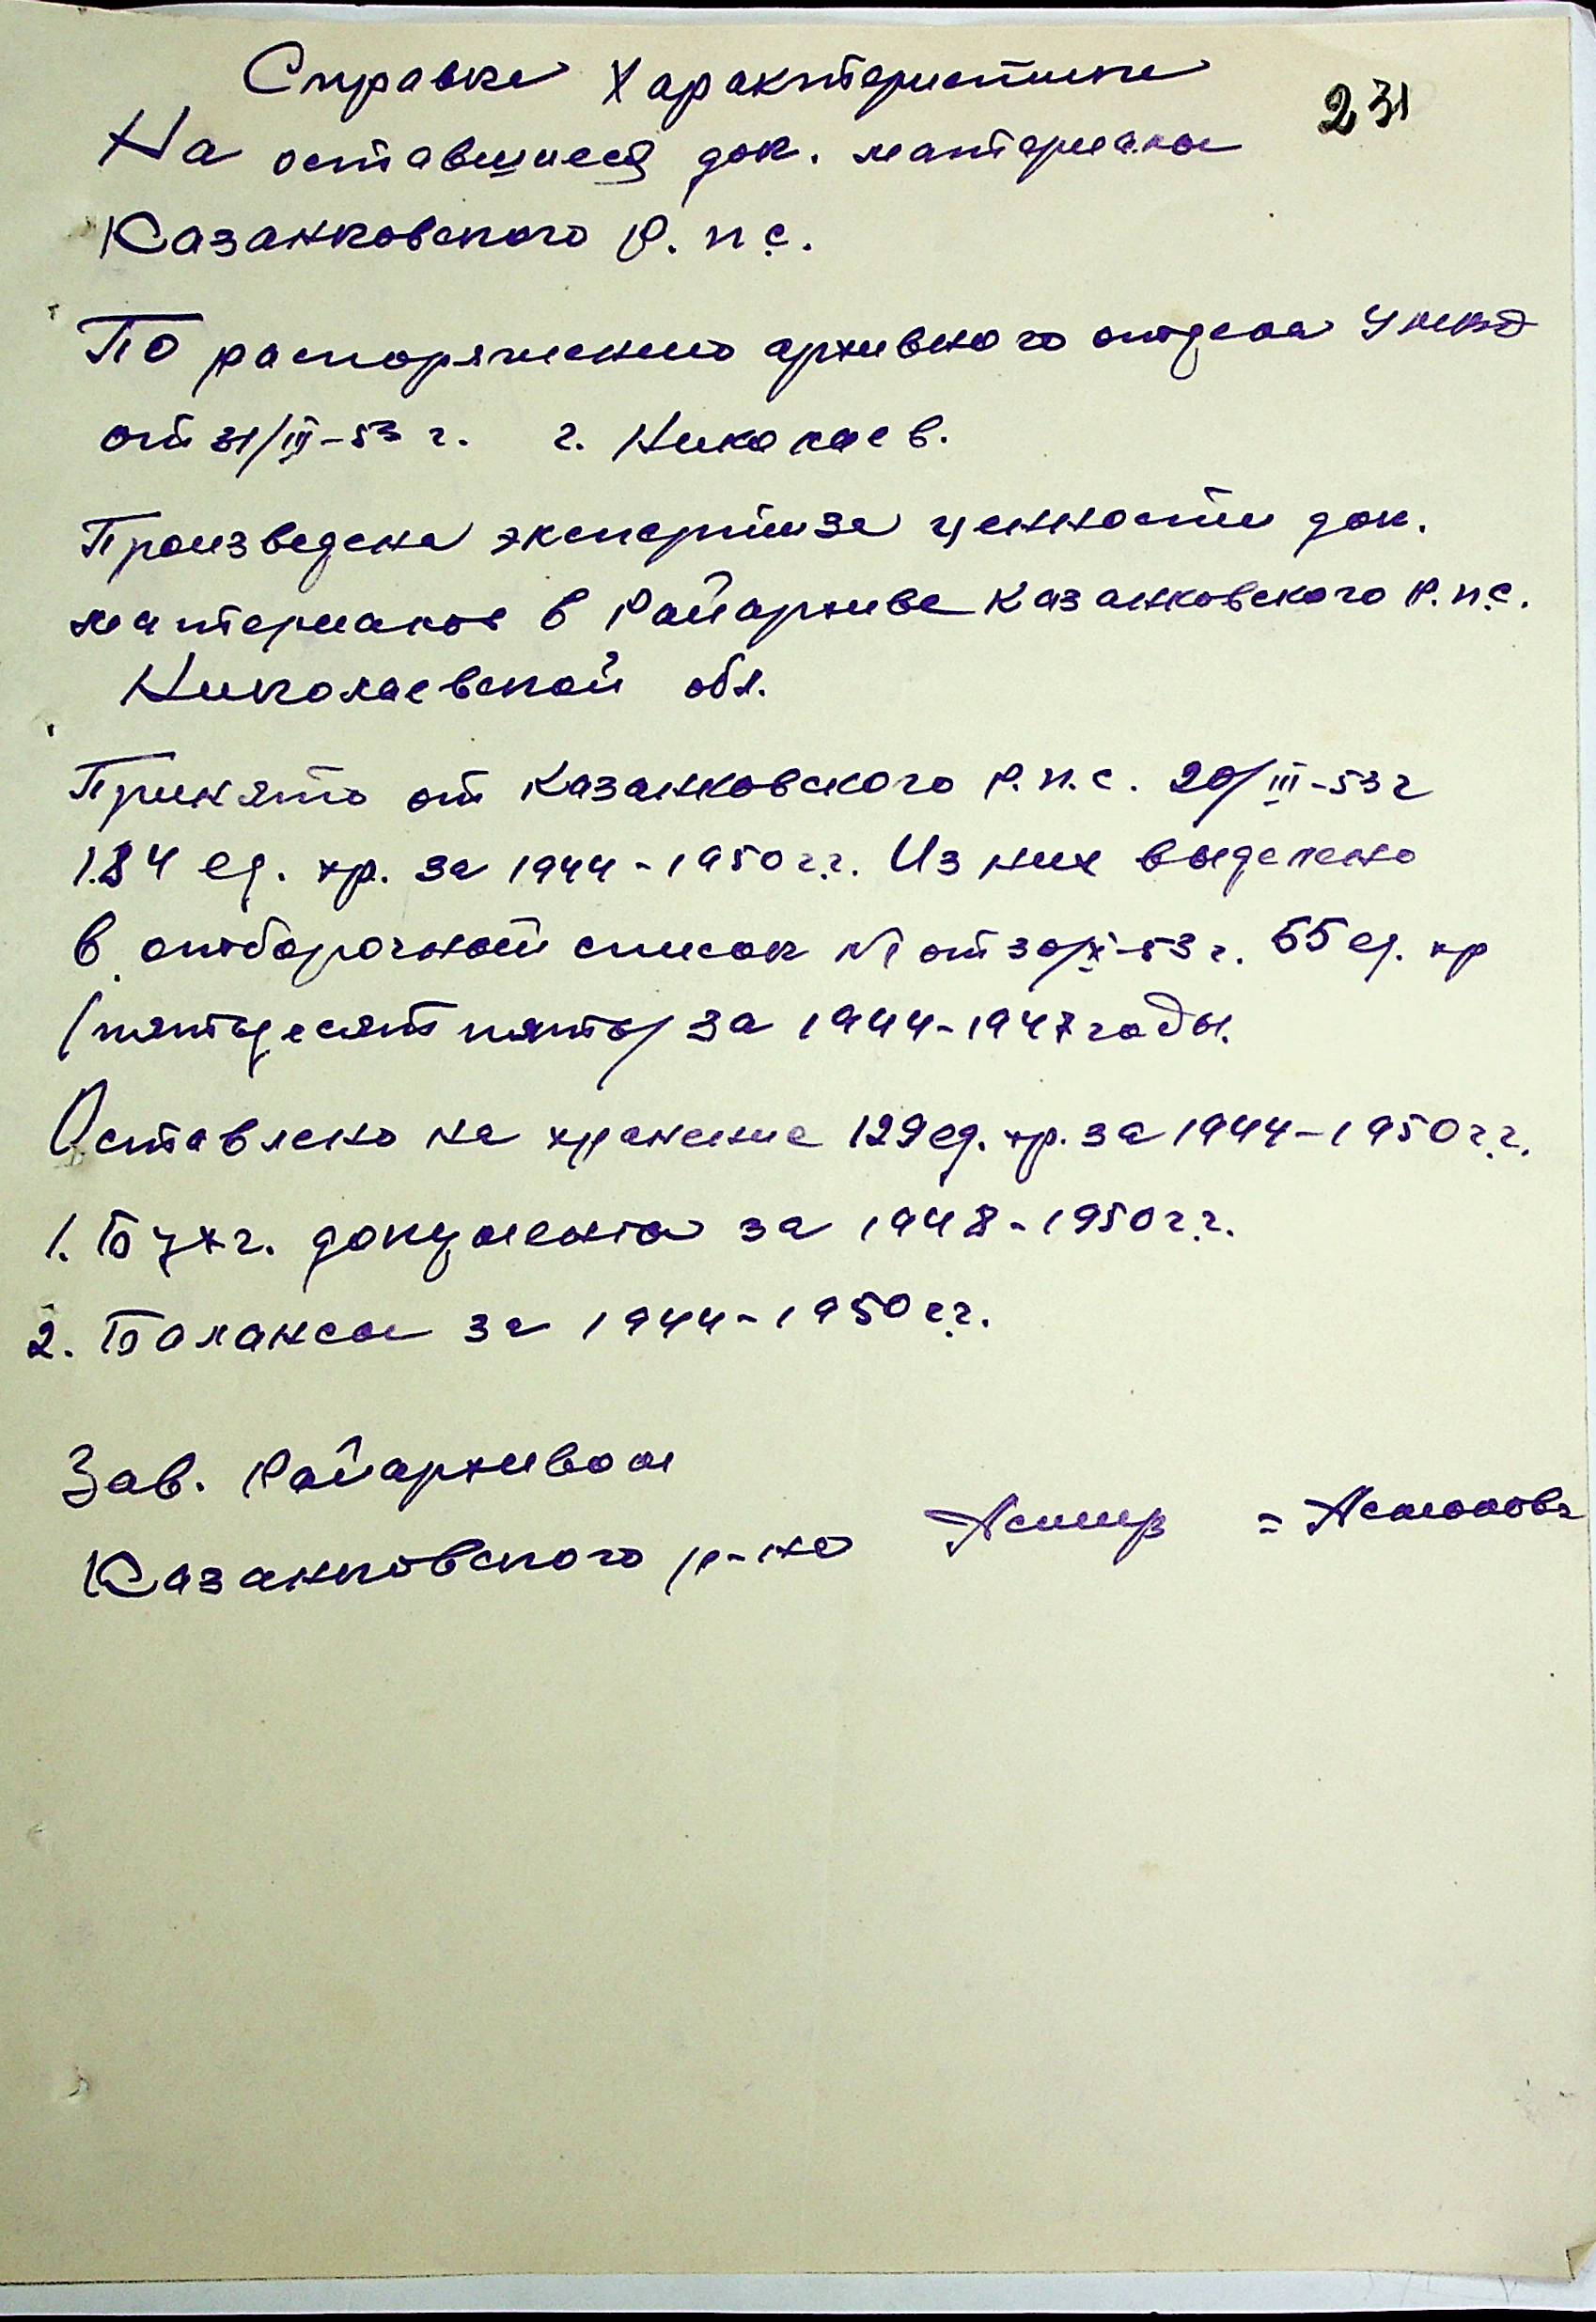 Справка Характеристика
231
На оставшиеся док. материалы
Казанковского Р.п.с.
По распоряжению архивного отдела УМВД
от 31/III-53 г. г. Николаев.
Произведена экспертиза ценности док.
материалов в Райархиве Казанковского Р.п.с.
Николаевской обл.
Принято от Казанковского Р.п.с. 20/III-53 г
184 ед. хр. за 1944-1950 г.г. Из них выделено
в отборочный список №1 от 30/X-53 г. 55 ед. хр
/пятьдесят пять/ за 1944-1947 годы.
Оставлено на хранение 129 ед. хр. за 1944-1950 г.г.
1. Бухг. документы за 1948-1950 г.г.
2. Балансы за 1944-1950 г.г.
Зав. Райархивом
Казанковского р-на